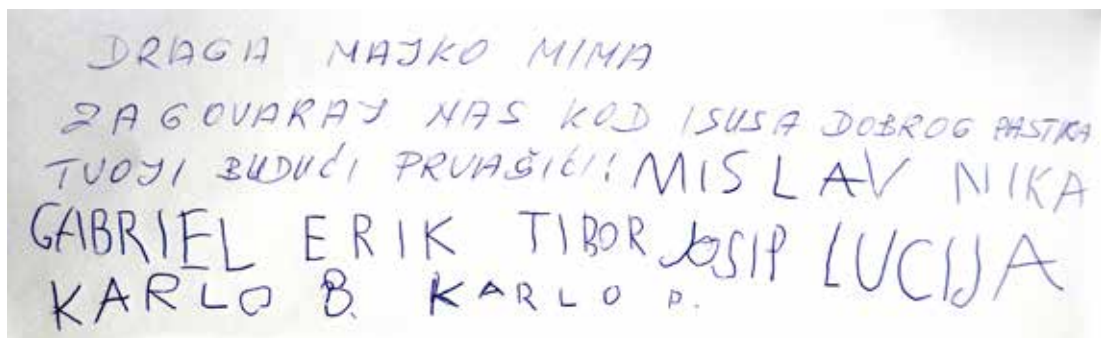 DRAGA MAJKO MIMA
ZAGOVARAJ NAS KOD ISUSA DOBROG PASTIRA
TVOJI BUDUĆI PRVAŠIĆI! MISLAV NIKA
GABRIEL ERIK TIBOR JOSIP LUCIJA
KARLO B. KARLO P.